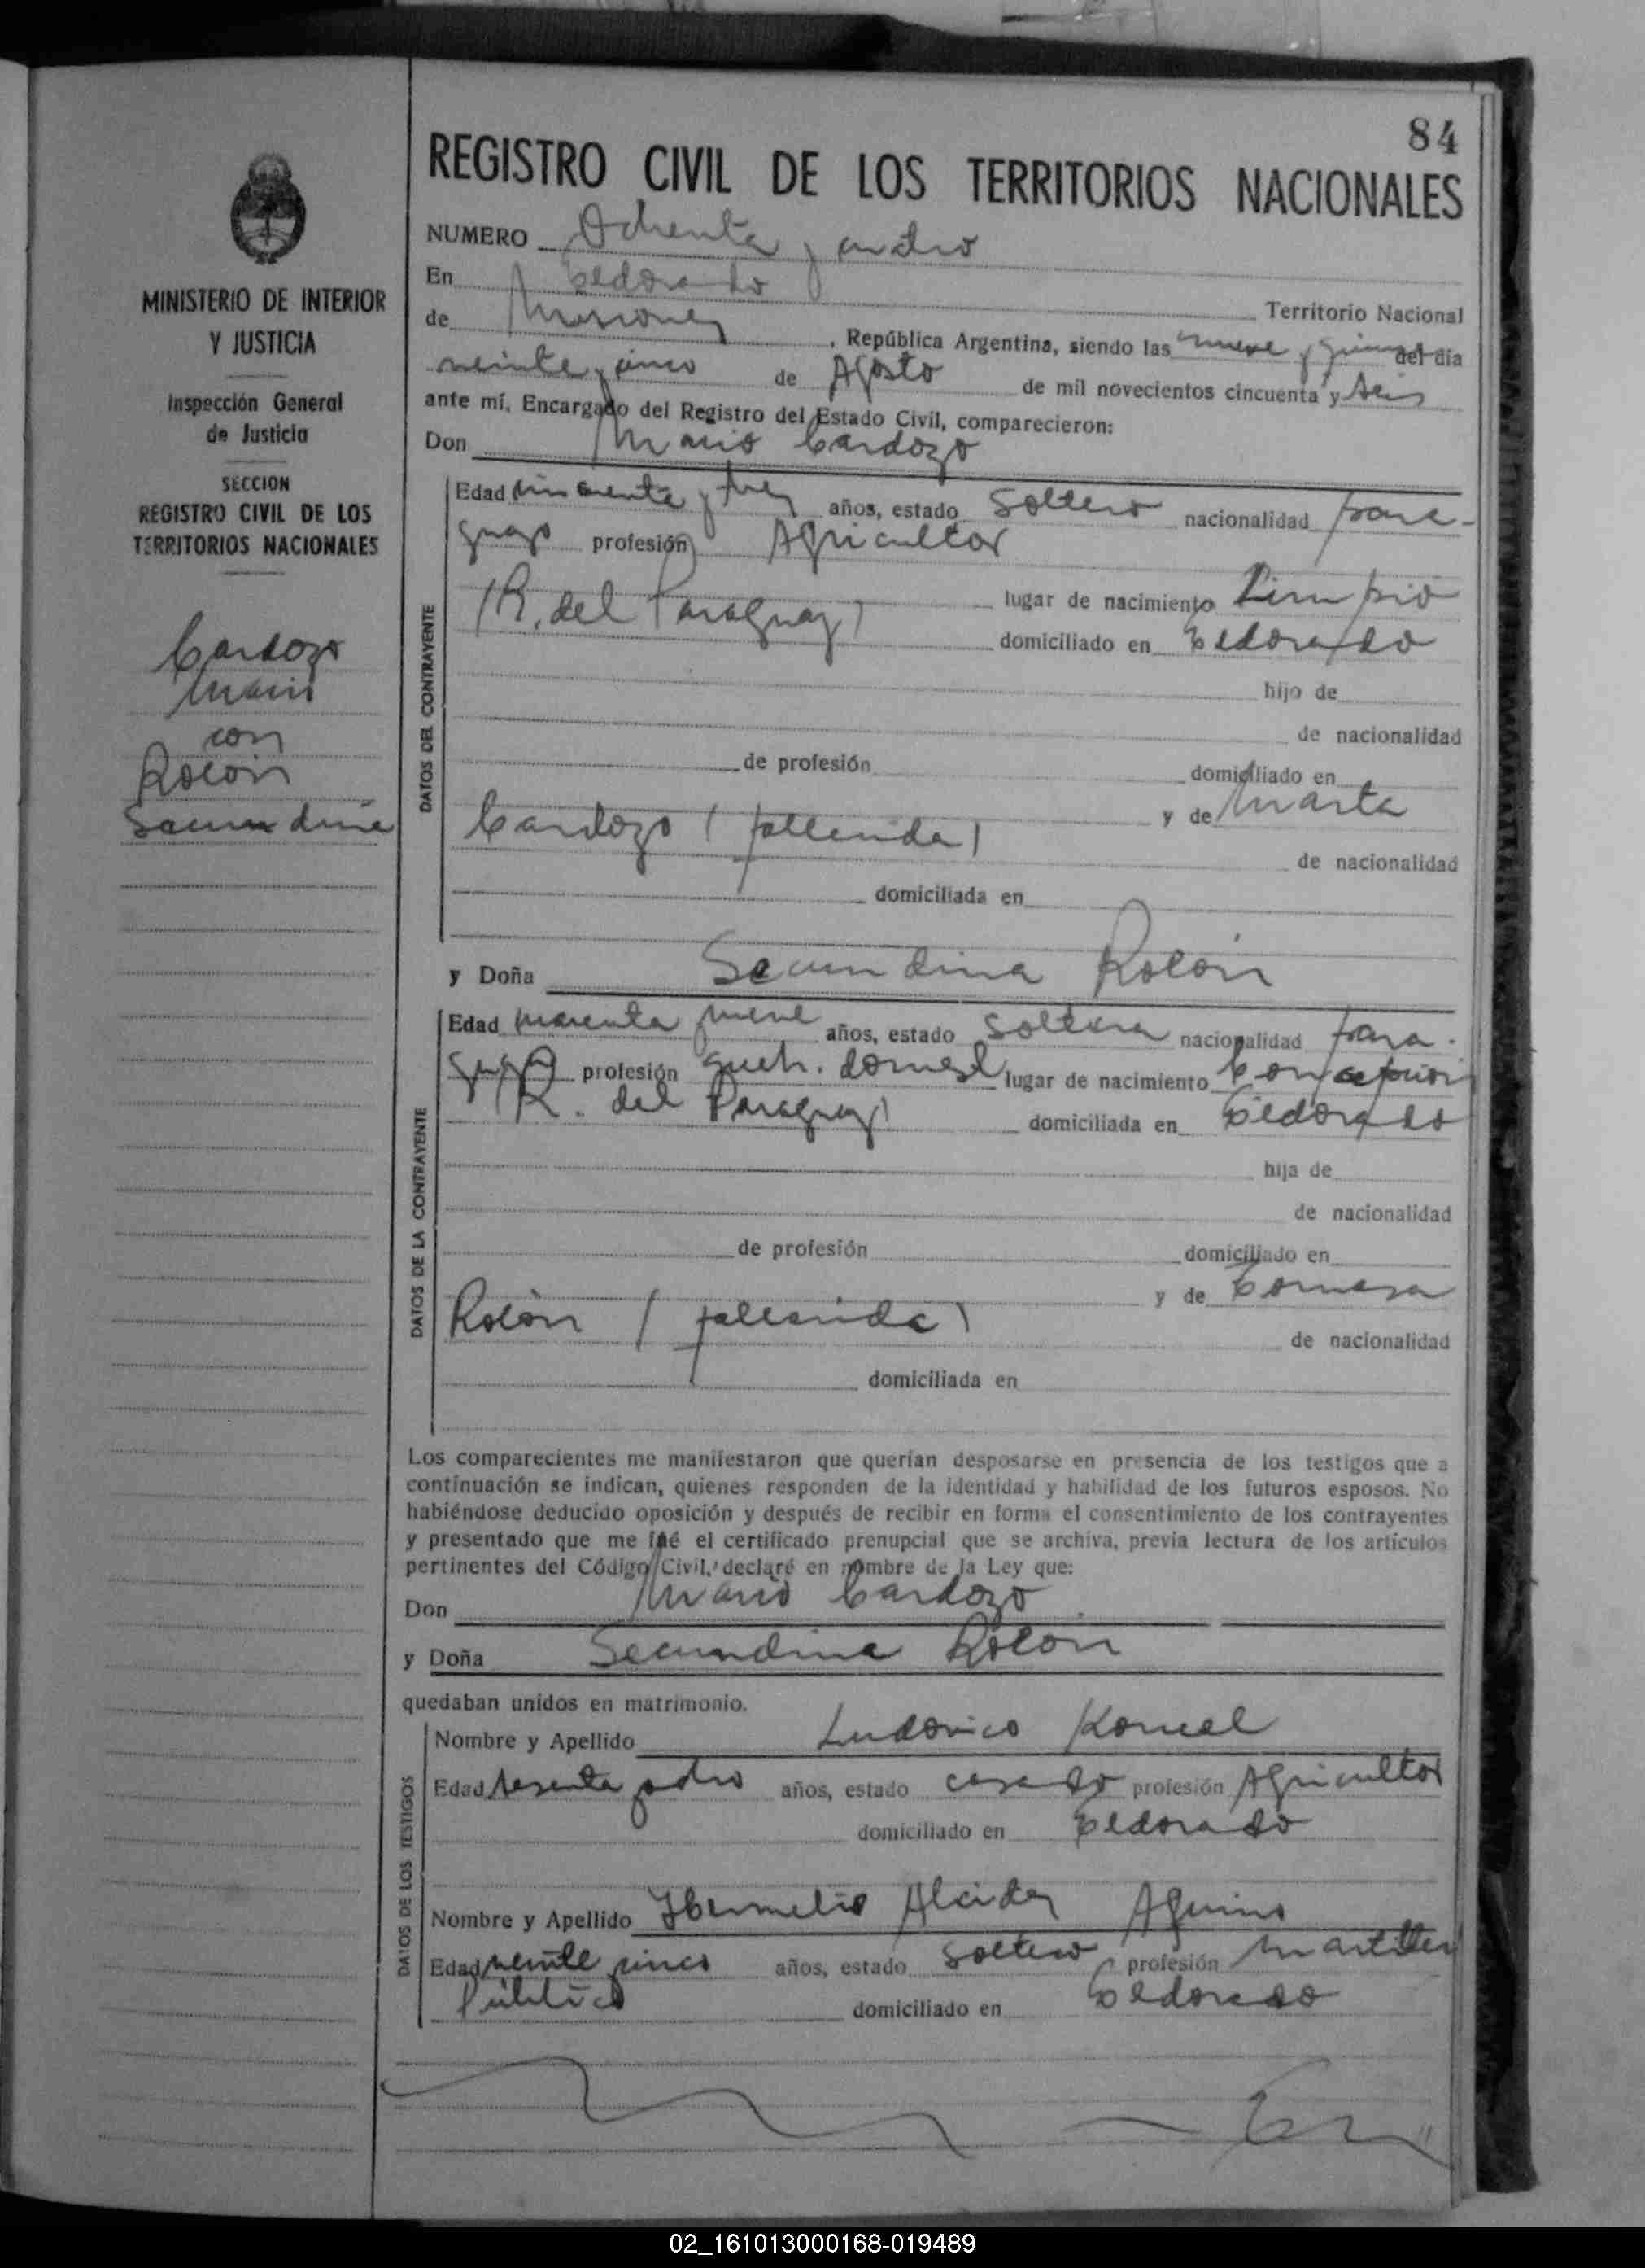 84
REGISTRO CIVIL DE LOS TERRITORIOS NACIONALES
MINISTERIO DE INTERIOR
Y JUSTICIA
Inspección General
de Justicia
SECCION
REGISTRO CIVIL DE LOS
TERRITORIOS NACIONALES
Cardozo
Mario
con
Rolón
Secundina
NUMERO Ochenta y cuatro
En Eldorado
Territorio Nacional
de Misiones, República Argentina, siendo las nueve y quince del día
veinte y cinco de Agosto de mil novecientos cincuenta y seis
ante mí, Encargado del Registro del Estado Civil, comparecieron:
Don Mario Cardozo
DATOS DEL CONTRAYENTE
Edad cincuenta y tres años, estado Soltero nacionalidad para-
guayo profesión Agricultor
lugar de nacimiento Limpio
(R. del Paraguay) domiciliado en Eldorado
hijo de
de nacionalidad
de profesión domiciliado en
y de Marta
Cardozo (fallecida)
de nacionalidad
domiciliada en
y Doña Secundina Rolón
DATOS DE LA CONTRAYENTE
Edad cuarenta y nueve años, estado Soltera nacionalidad para-
guaya profesión queh. domest lugar de nacimiento Concepción
(R. del Paraguay) domiciliada en Eldorado
hija de
de nacionalidad
de profesión domiciliado en
y de
Rolón (fallecida)
de nacionalidad
domiciliada en
Los comparecientes me manifestaron que querían desposarse en presencia de los testigos que a
continuación se indican, quienes responden de la identidad y habilidad de los futuros esposos. No
habiéndose deducido oposición y después de recibir en forma el consentimiento de los contrayentes
y presentado que me fué el certificado prenupcial que se archiva, previa lectura de los artículos
pertinentes del Código Civil, declaré en nombre de la Ley que:
Don Mario Cardozo
y Doña Secundina Rolón
quedaban unidos en matrimonio.
DATOS DE LOS TESTIGOS
Nombre y Apellido Ludovico
Edad sesenta y ocho años, estado casado profesión Agricultor
domiciliado en Eldorado
Nombre y Apellido Alcides Aquino
Edad veinte y cinco años, estado Soltero profesión Martillero
Público domiciliado en Eldorado
02_161013000168-019489